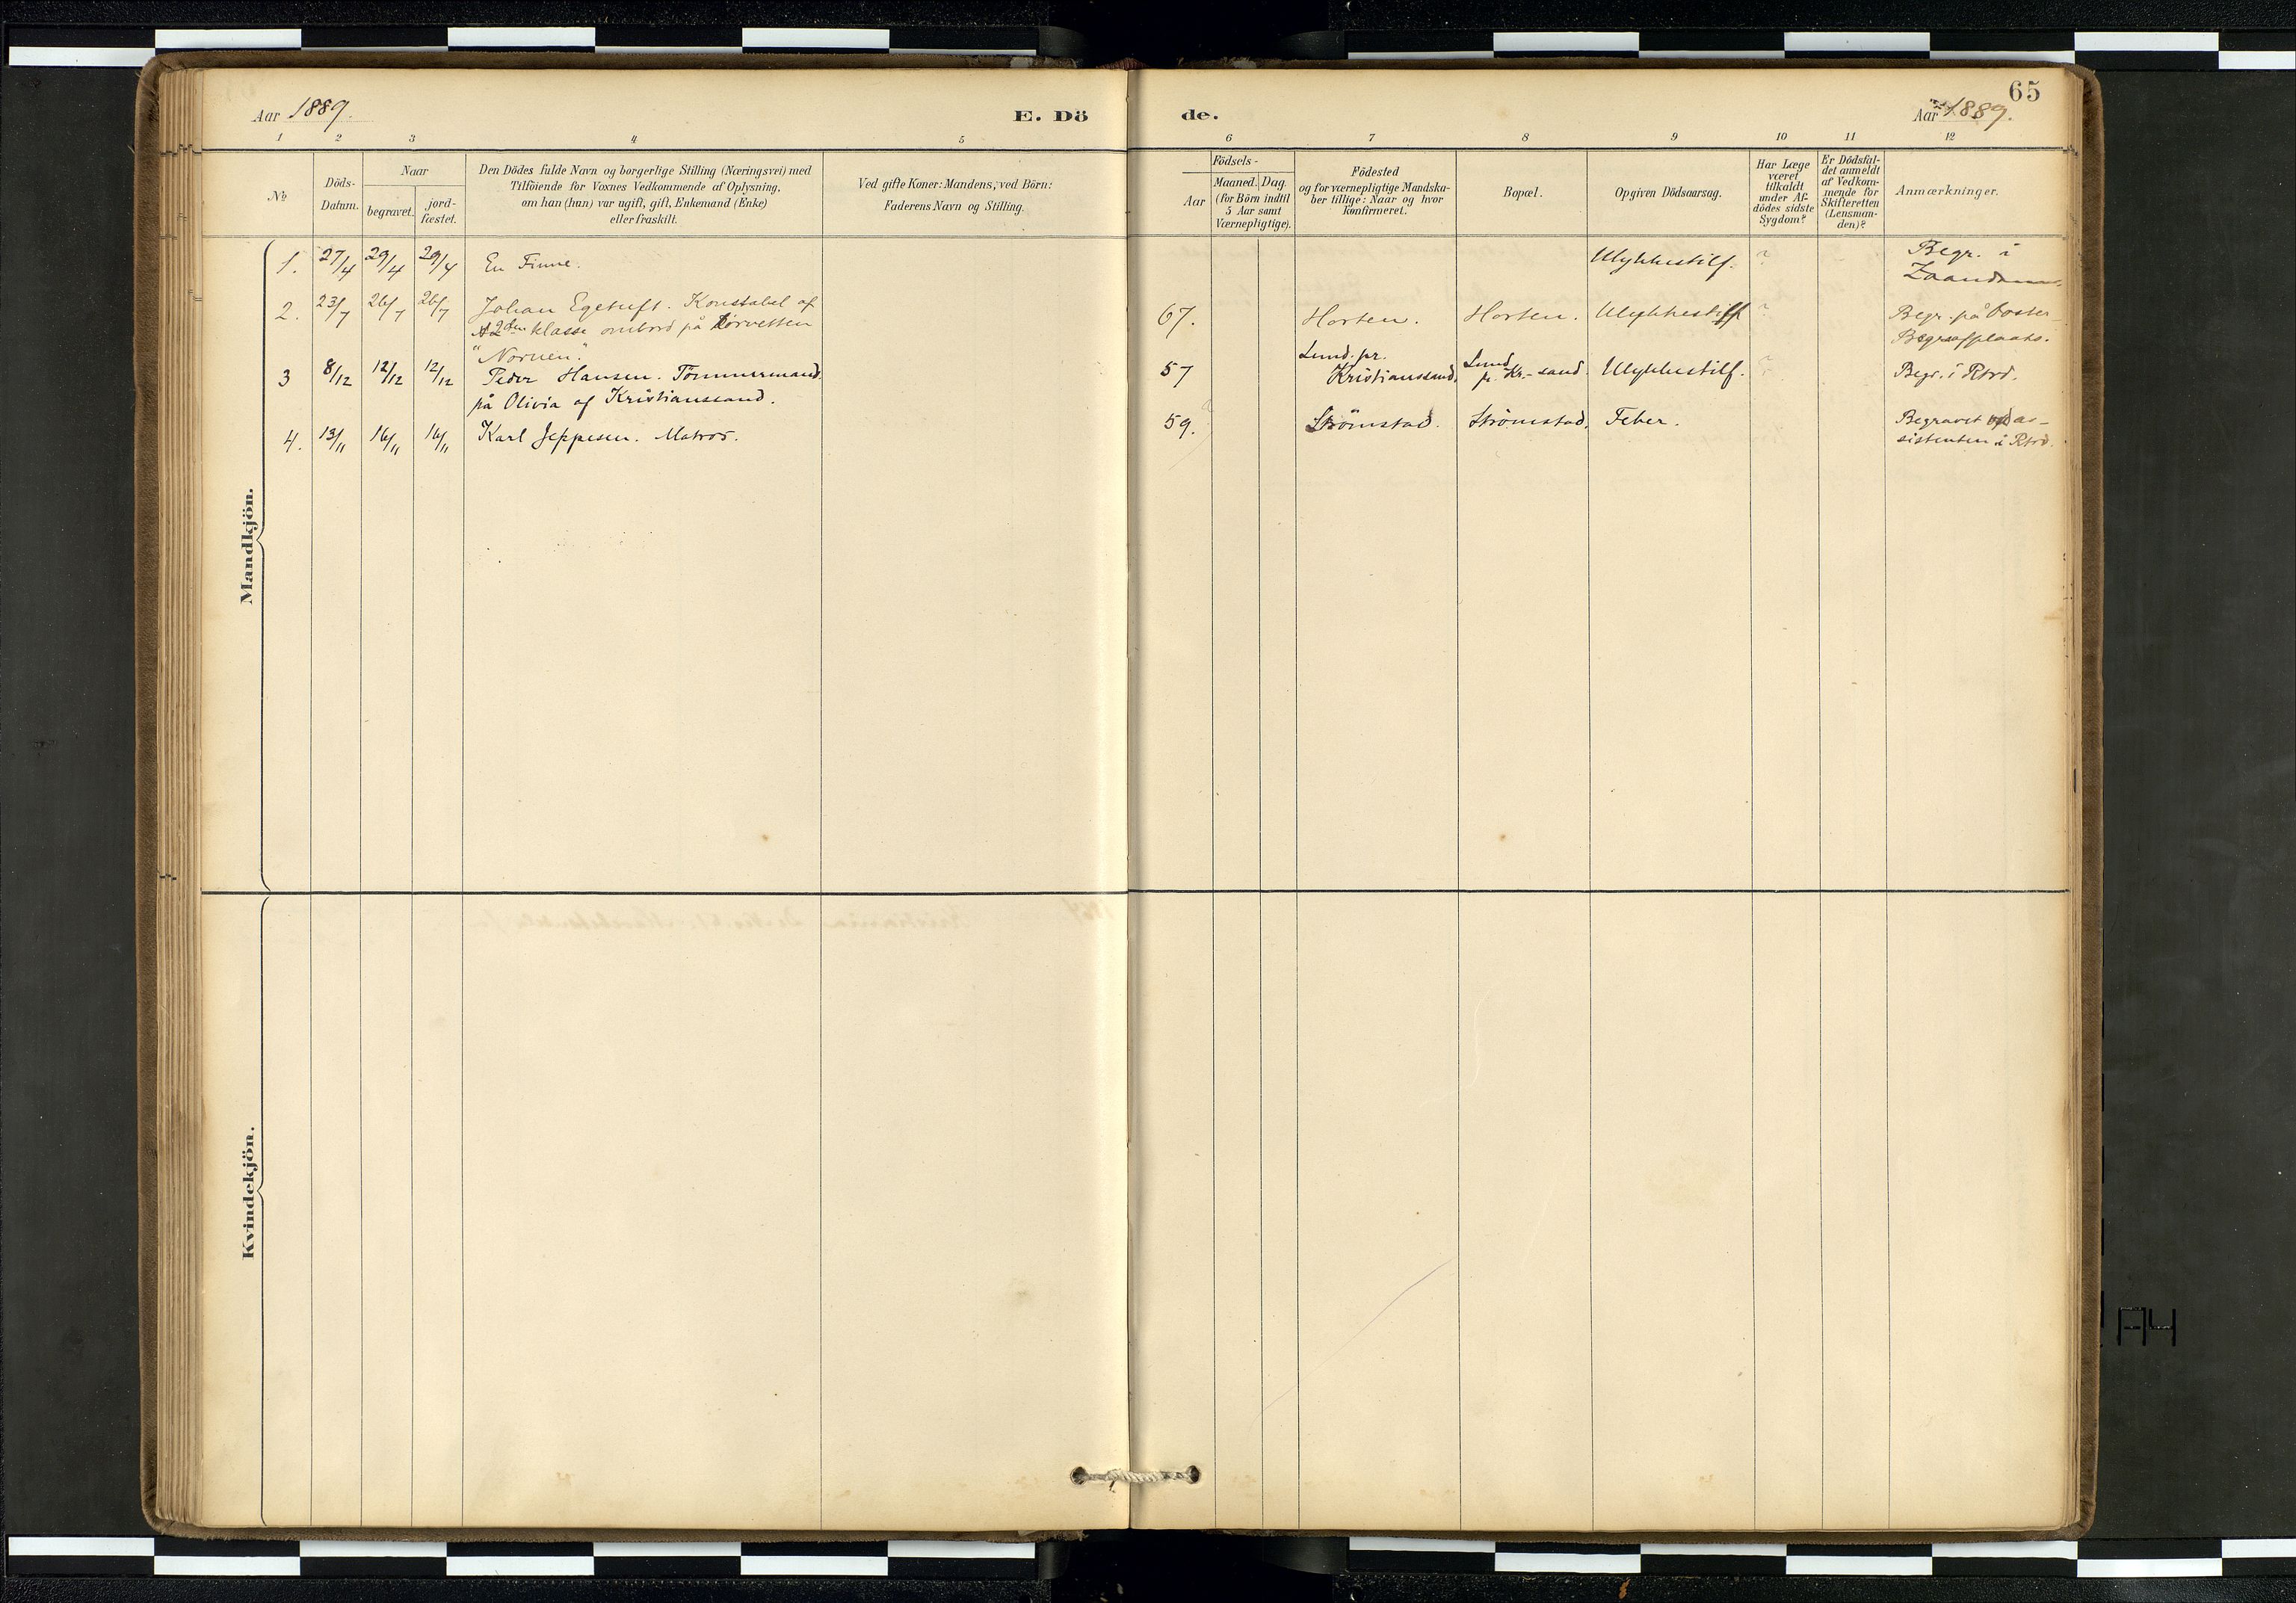 Aar 1889.
E. Dö
1 2 3 4 5
№
Döds-
Datum.
Naar
begravet.
jord-
fæstet.
Den Dödes fulde Navn og borgerlige Stilling (Næringsvei) med
Tilföiende for Voxnes Vedkommende af Oplysning,
om han (hun) var ugift, gift, Enkemand (Enke)
eller fraskilt.
Ved gifte Koner: Mandens; ved Börn:
Faderens Navn og Stilling.
Mandkjön.
1. 27/4 29/4 29/4 En Finne.
2. 23/7 26/7 26/7 Johan Egetuft. Konstabel af
2den klasse ombord på korvetten
"Nornen."
3 8/12 12/12 12/12 Peder Hansen. Tömmermand
på Olivia af Kristianssand.
4. 13/11 16/11 16/11 Karl Jeppesen. Matros.
Kvindekjön.
65
de.
Aar 1889.
6 7 8 9 10 11 12
Födsels-
Aar
Maaned. Dag.
(for Börn indtil
5 Aar samt
Værnepligtige).
Födested
og for værnepligtige Mandska-
ber tillige: Naar og hvor
konfirmeret.
Bopæl.
Opgiven Dödsaarsag.
Har Læge
været
tilkaldt
under Af-
dödes sidste
Sygdom?
Er Dödsfal-
det anmeldt
af Vedkom-
mende for
Skifteretten
(Lensman-
den)?
Anmærkninger.
Ulykkestilf. ? Begr. i
Zaandam.
67. Horten. Horten. Ulykkestilf ? Begr. på Ooster
Begraafplaats.
57 Lund. pr.
Kristianssand, Lund
p. Kr.-sand. Ulykkestilf. ? Begr. i Rtrd.
59. Strömstad. Strömstad. Feber. Begravet ved as-
sistenten i Rtrd.